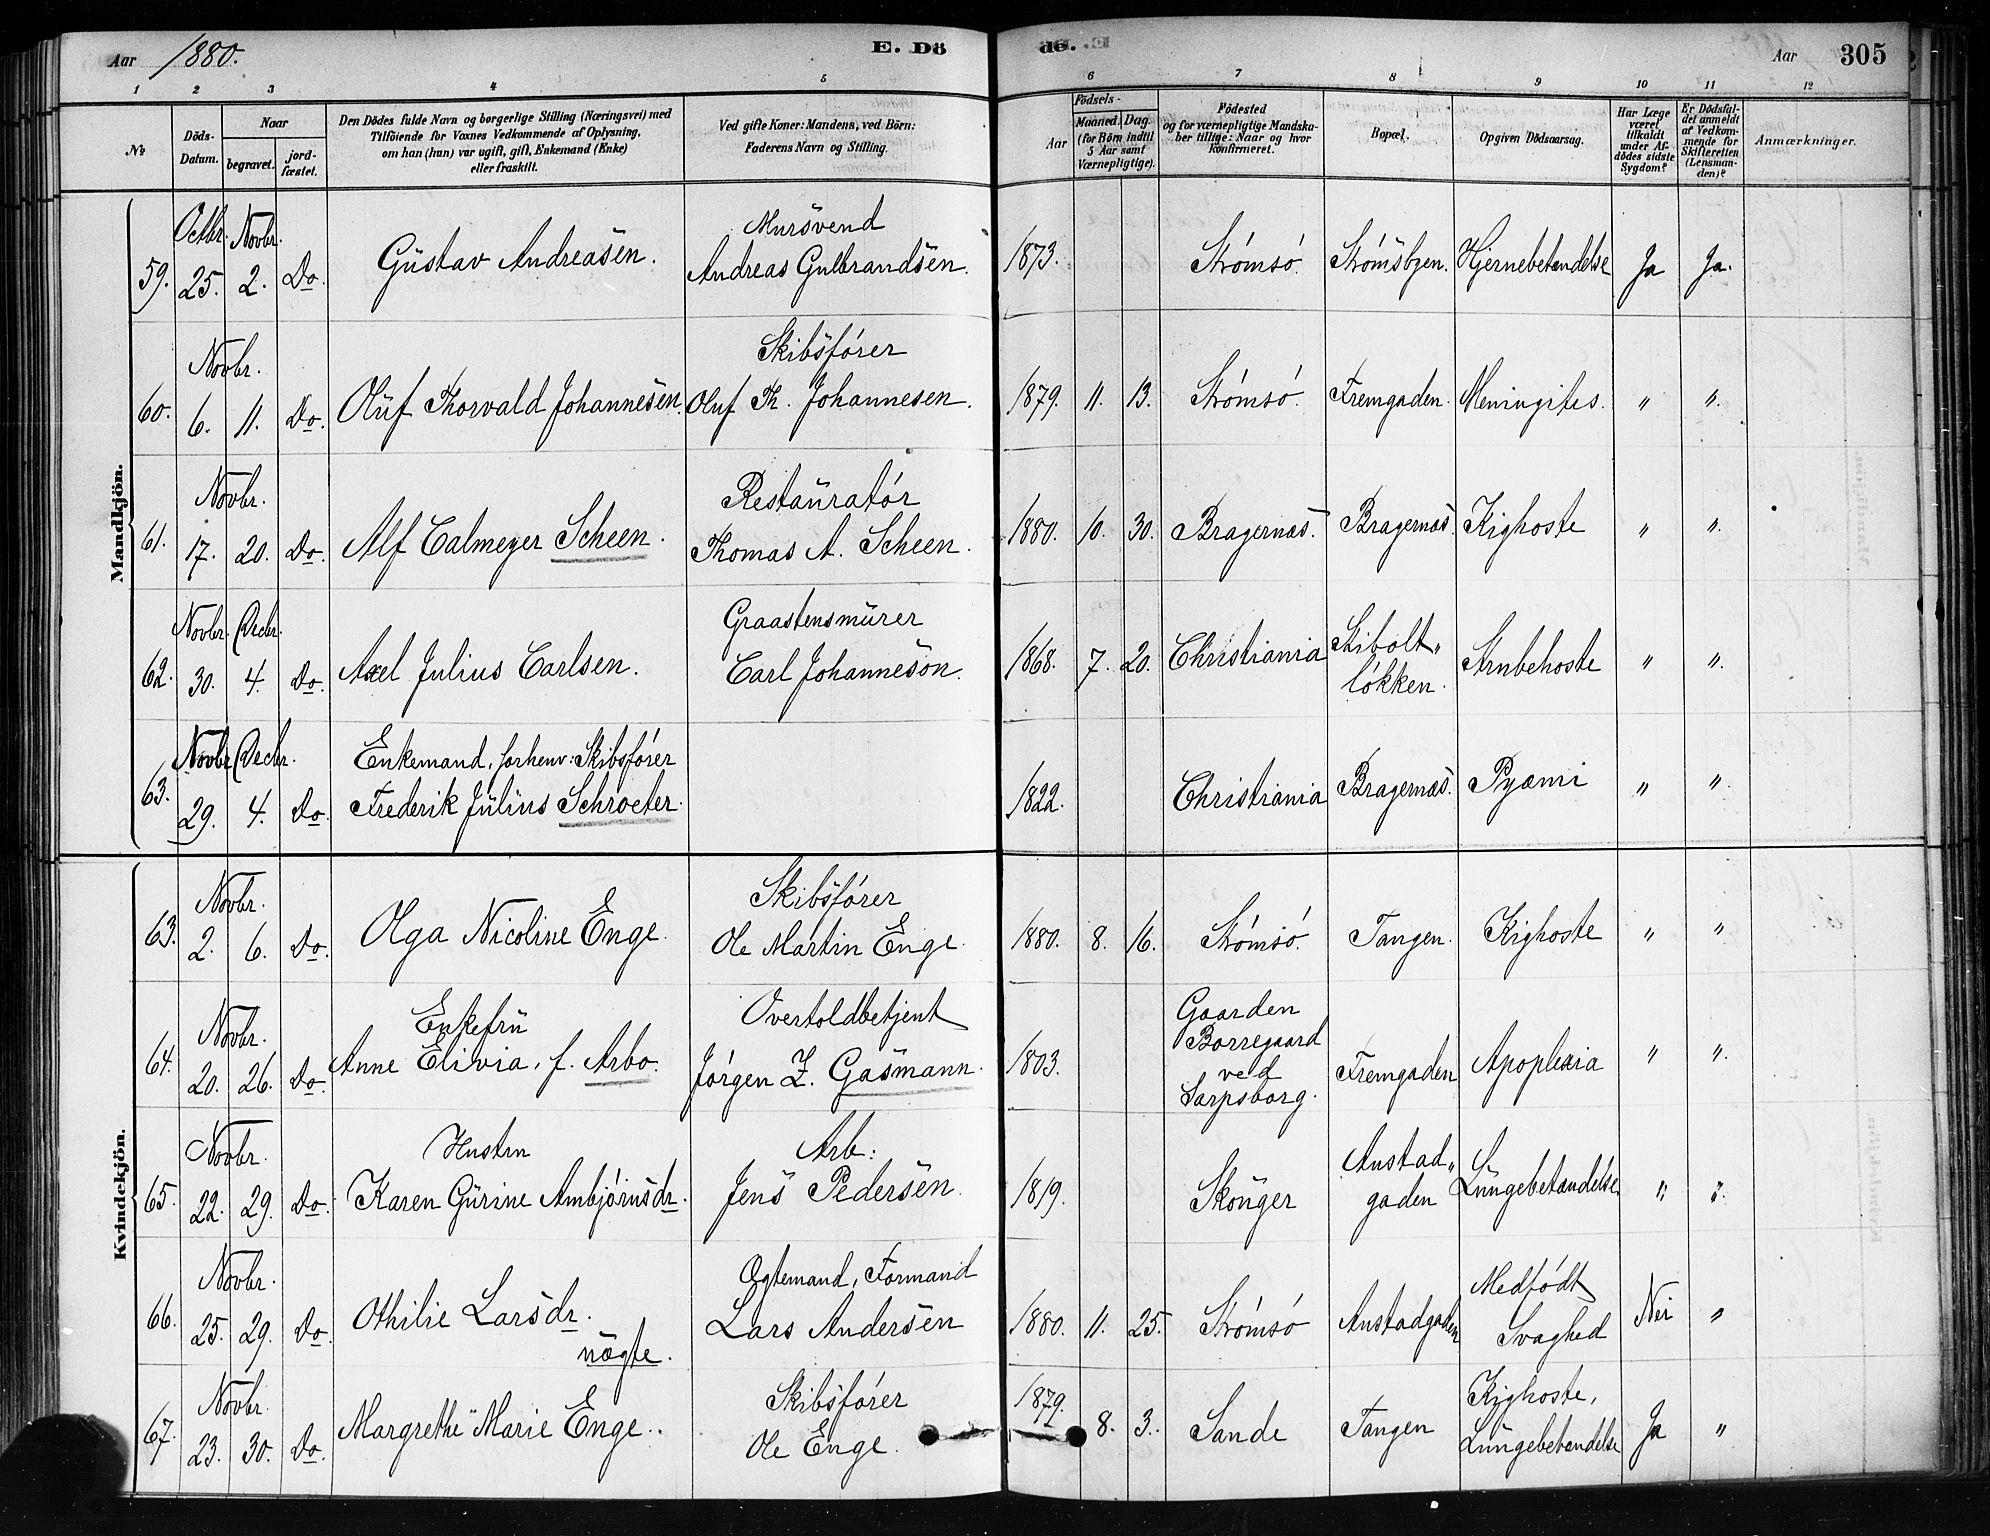 Aar 1880. E. Dö de. Aar 305
1 2 3 4 5 6 7 8 9 10 11 12
№
Döds-Datum.
Naar begravet. jordfæstet.
Den Dödes fulde Navn og borgerlige Stilling (Næringsvei) med
Tilföiende for Voxnes Vedkommende af Oplysning,
om han (hun) var ugift, gift, Enkemand (Enke)
eller fraskilt.
Ved gifte Koner: Mandens, ved Börn:
Faderens Navn og Stilling.
Födsels-
Aar Maaned. Dag.
(for Börn indtil
5 Aar samt
Værnepligtige).
Födested
og for værnepligtige Mandska-
ber tillige: Naar og hvor
konfirmeret.
Bopæl.
Opgiven Dödsaarsag.
Har Læge
været
tilkaldt
under Af-
dödes sidste
Sygdom?
Er Dödsfal-
det anmeldt
af Vedkom-
mende for
Skifteretten
(Lensman-
den)?
Anmærkninger.
Mandkjön.
Octbr. Novbr. Mursvend
59. 25. 2. Do. Gustav Andreasen. Andreas Gulbrandsen. 1873. Strömsö. Strömsbyen. Hjernebetendelse Ja Ja.
Novbr. Skibsförer
60. 6. 11. Do. Oluf Thorvald Johannesen. Oluf Th. Johannesen. 1879. 11. 13. Strömsö. Fremgaden. Meningites. " ".
Novbr. Restauratör
61. 17. 20. Do. Alf Calmeyer Scheen. Thomas A. Scheen. 1880. 10. 30. Bragernæs. Bragernæs. Kighoste " ".
Novbr. Decbr. Graastensmurer
62. 30. 4. Do. Axel Julius Carlsen. Carl Johanneson. 1868. 7. 20. Christiania Skibolt„ Strubehoste " ".
lökken.
Novbr. Decbr. Enkemand, forhenv: Skibsförer
63. 29. 4. Do. Frederik Julius Schroeter. 1822. Christiania Bragernæs. Pyæmi " ".
Kvindekjön.
Novbr. Skibsförer
63. 2. 6. Do. Olga Nicoline Enge. Ole Martin Enge. 1880. 8. 16. Strömsö. Tangen. Kighoste " "
Novbr. Enkefru Overtoldbetjent Gaarden
64. 20. 26. Do. Anne Elivia, f. Arbo. Jörgen Z. Gasmann. 1803. Borregaard Fremgaden Apoplexia " ".
ved
Sarpsborg.
Novbr. Hustru Arb: Austad„
65. 22. 29. Do. Karen Gurine Ambjörnsdr. Jens Pedersen. 1819. Skouger gaden Lungebetændelse " ".
Novbr. Ægtemand, Formand Medfödt
66. 25. 29. Do. Othilie Larsdr. Lars Andersen 1880. 11. 25. Strömsö Austadgaden Svaghed Nei "
uægte.
Novbr. Skibsförer Kighoste,
67. 23. 30. Do. Margrethe Marie Enge. Ole Enge. 1879. 8. 3. Sande Tangen Lungebetendelse Ja "